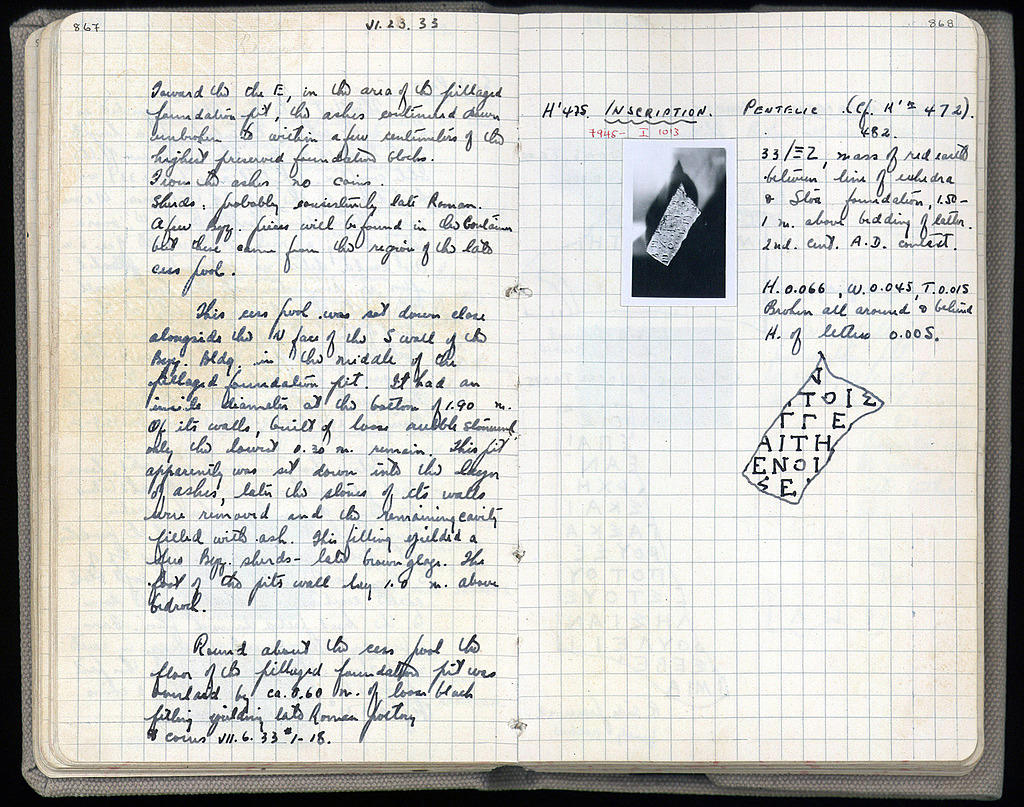 867
VI. 23. 33
Toward the the E, in the area of the pillaged
foundation pit, the ashes continued down
unbroken to within a few centimeters of the
highest preserved foundation blocks.
From the ashes no coins.
Sherds, probably consistently late Roman.
A few Byz. pieces will be found in the Container
but these came from the region of the late
cess pool.
This cess pool was set down close
alongside the N face of the S wall of the
Byz. Bldg. in the middle of the
pillaged foundation pit. It had an
inside diameter at the bottom of 1.90 m.
Of its walls, built of loose rubble stonework,
only the lowest 0.30 m. remain. This pit
apparently was set down into the layer
of ashes, later the stones of its walls
were removed and the remaining cavity
filled with ash. This filling yielded a
few Byz. sherds - late brown glaze. The
foot of the pits wall lay 1.0 m. above
bedrock.
Round about the cess pool the
floor of the pillaged foundation pit was
overlaid by ca. 0.60 m. of loose black
filling yielding late Roman pottery
& coins VII. 6. 33 #1-18.
868
H'475. INSCRIPTION. PENTELIC (Cf. H'# 472).
482.
7945- I 1013
33/ΞΖ, mass of red earth
between line of exhedra
& Stoa foundation, 1.50-
1 m. above bedding of latter.
2nd. cent. A.D. context.
H. 0.066, W. 0.045, T. 0.015
Broken all around & behind
H. of letters 0.005.
ΤΟΙΣ
ΓΓΕ
ΑΙΤΗ
ΕΝΟΙ
ΣΕ